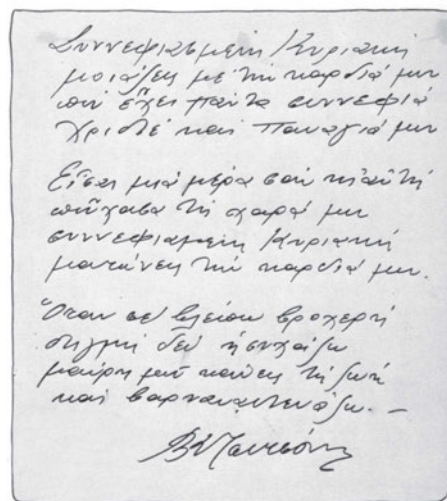 Συννεφιασμένη Κυριακή
μοιάζεις με τήν καρδιά μου
πού ἔχει πάντα συννεφιά
Χριστέ και Παναγιά μου
Εἶσαι μιά μέρα σαν κι' αὐτή
ποὖχασα τή χαρά μου
συννεφιασμένη Κυριακή
ματώνεις τήν καρδιά μου.
Ὅταν σέ βλέπω βροχερή
στιγμή δέν ἡσυχάζω
μαύρη μοῦ κάνεις τή ζωή
και βαρυαναστενάζω. —
Β. Τσιτσάνης